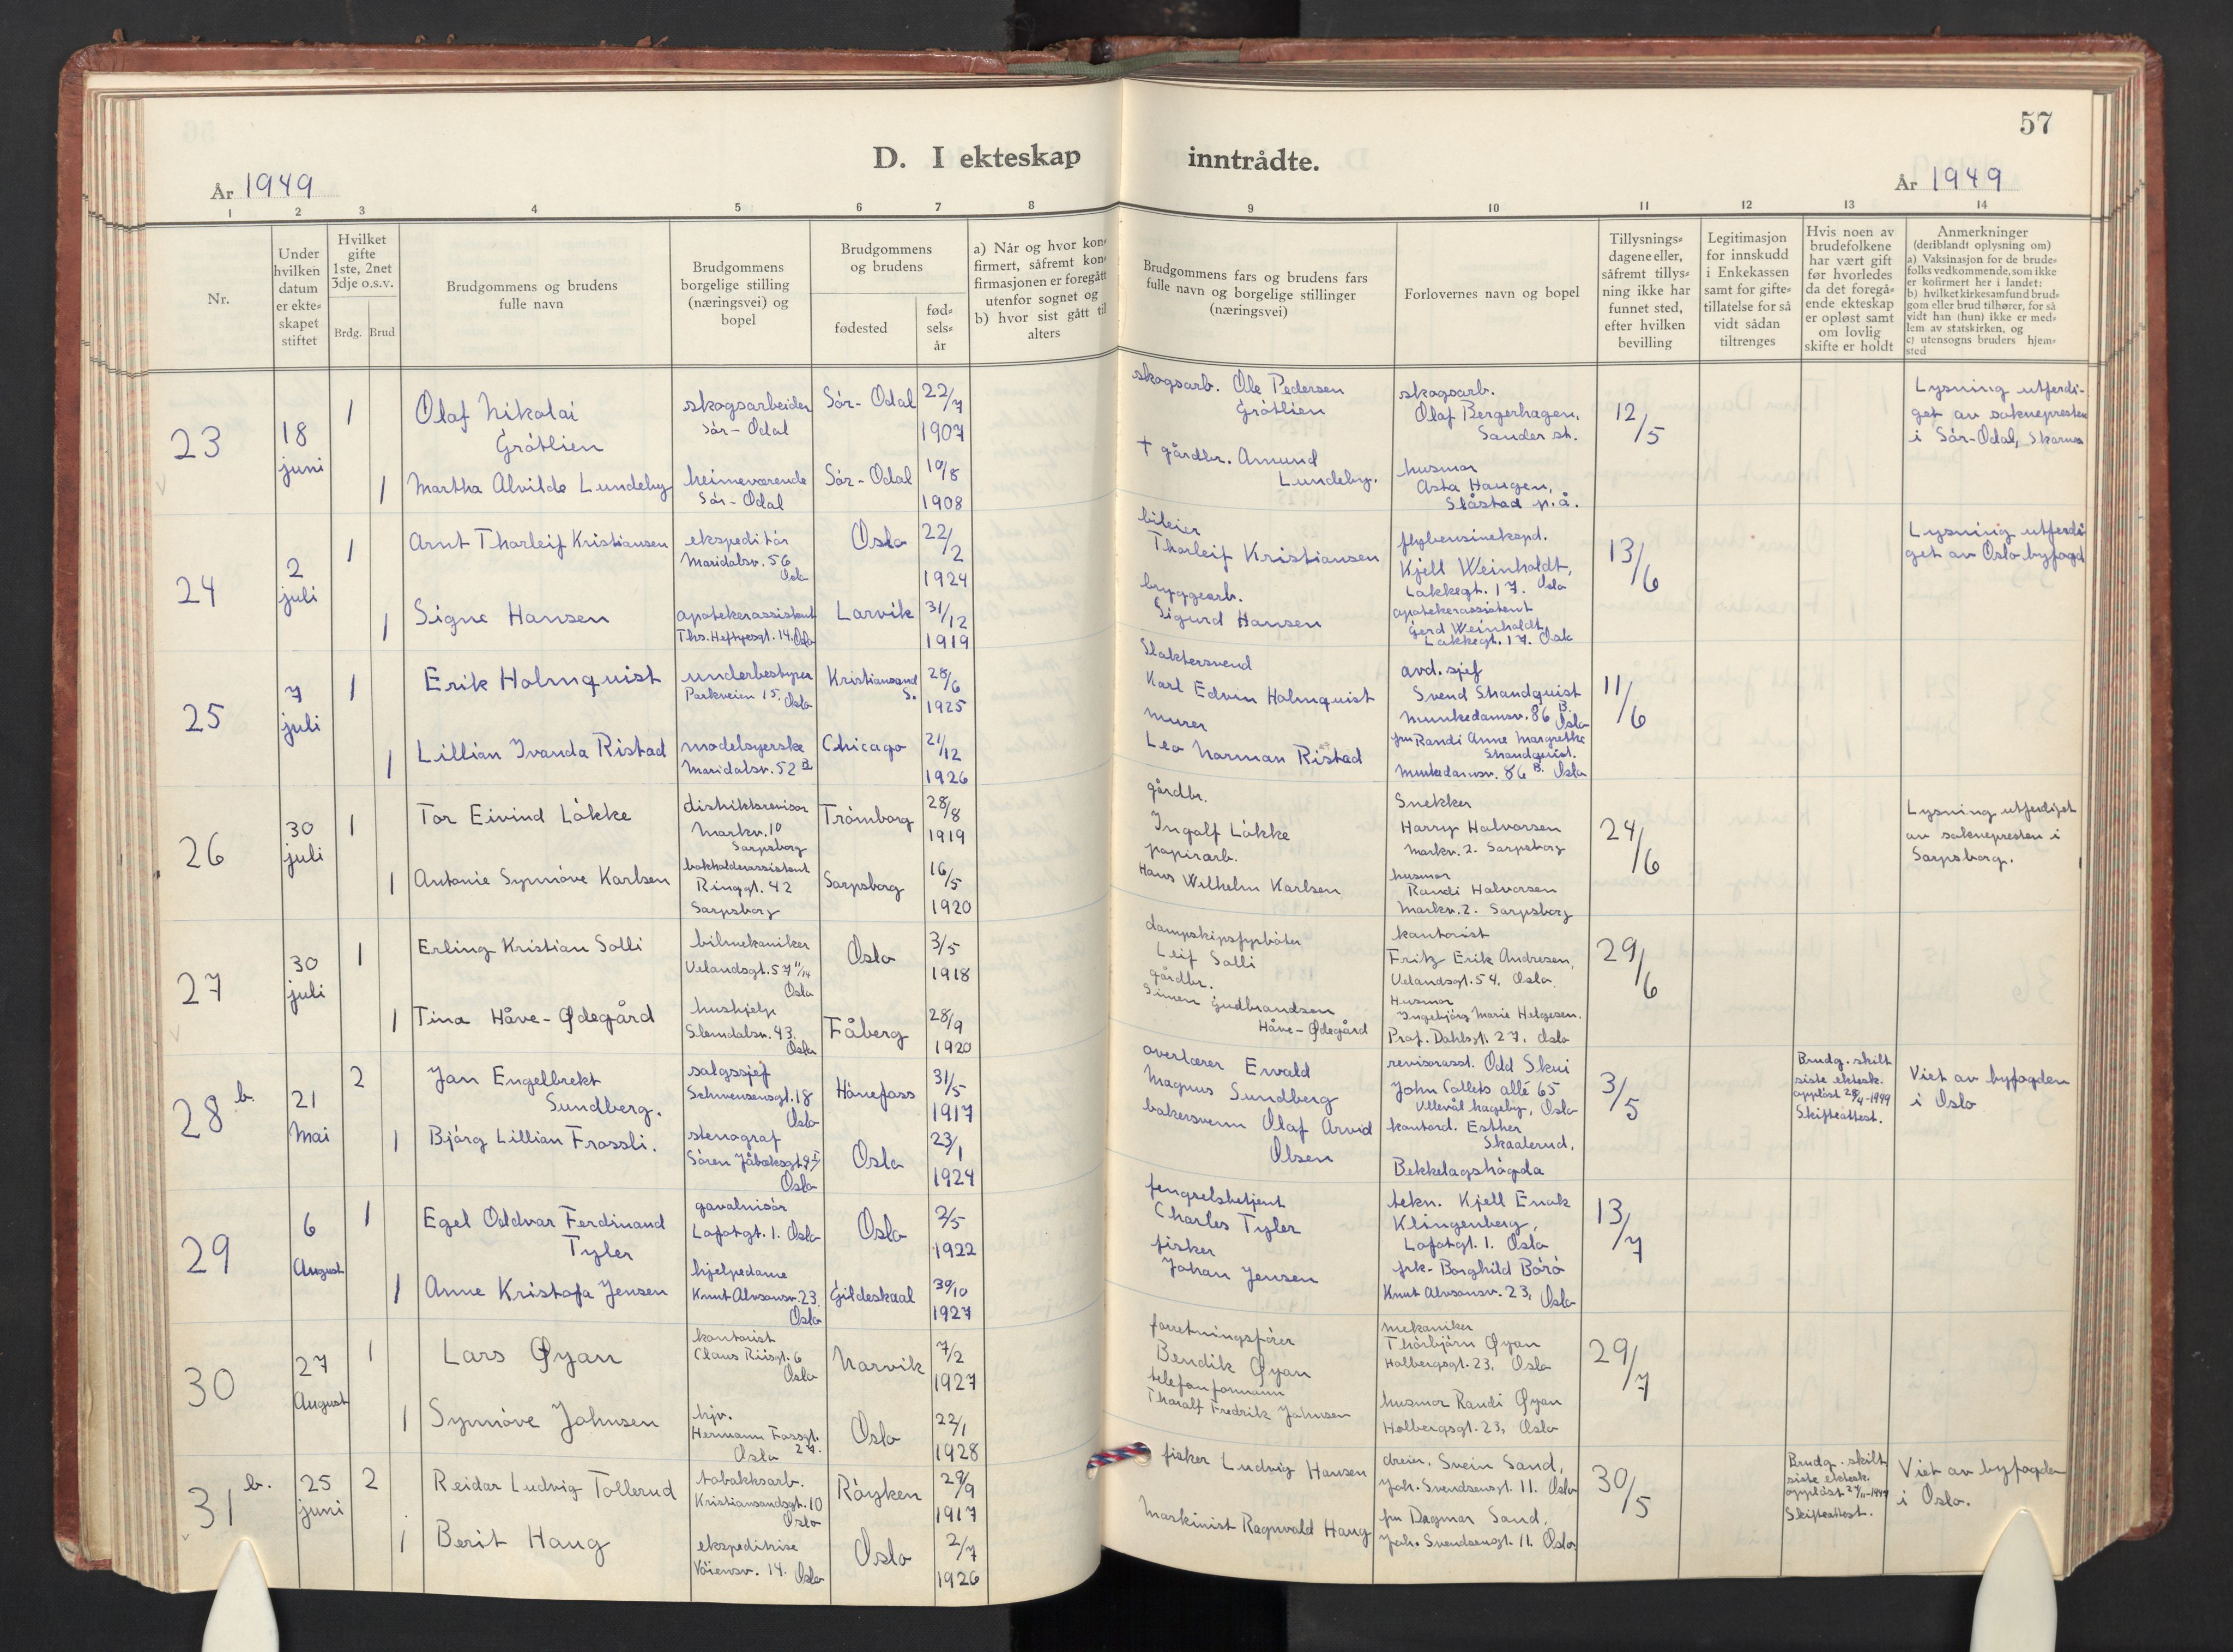 57
D. I ekteskap inntrådte.
År 1949
År 1949
1 2 3 4 5 6 7 8 9 10 11 12 13 14
Nr.
Under
hvilken
datum
er ekte-
skapet
stiftet
Hvilket
gifte
1ste, 2net
3dje o.s.v.
Brdg. Brud
Brudgommens og brudens
fulle navn
Brudgommens
borgelige stilling
(næringsvei) og
bopel
Brudgommens
og brudens
fødested
fød-
sels-
år
a) Når og hvor kon-
firmert, såfremt kon-
firmasjonen er foregått
utenfor sognet og
b) hvor sist gått til
alters
Brudgommens fars og brudens fars
fulle navn og borgelige stillinger
(næringsvei)
Forlovernes navn og bopel
Tillysnings-
dagene eller,
såfremt tillys-
ning ikke har
funnet sted,
efter hvilken
bevilling
Legitimasjon
for innskudd
i Enkekassen
samt for gifte-
tillatelse for så
vidt sådan
tiltrenges
Hvis noen av
brudefolkene
har vært gift
før hvorledes
da det foregå-
ende ekteskap
er opløst samt
om lovlig
skifte er holdt
Anmerkninger
(deriblandt oplysning om)
a) Vaksinasjon for de brude-
folks vedkommende, som ikke
er kofirmert her i landet:
b) hvilket kirkesamfund brud-
gom eller brud tilhører, for så
vidt han (hun) ikke er med-
lem av statskirken, og
c) utensogns bruders hjem-
sted
23
18
juni
1
Olaf Nikolai
Gråtlien
skogsarbeider
Sør-Odal
Sør-Odal
22/7
1907
skogsarb. Ole Pedersen
Gråtlien
skogsarb.
Olaf Bergerhagen,
Sander st.
12/5
Lysning utferdi-
get av soknepresten
i Sør-Odal, Skarnes
1
Martha Alvilde Lundeby
heimeværende
Sør-Odal
Sør-Odal
10/8
1908
† gårdbr. Amund
Lundeby.
husmor
Asta Haugen,
Slåstad p.å.
24
2
juli
1
Arnt Thorleif Kristiansen
ekspeditør
Maridalsv. 56
Oslo
Oslo
22/2
1924
bileier
Thorleif Kristiansen
flybensinekspd.
Kjell Weinholdt,
Lakkegt. 17. Oslo
13/6
Lysning utferdi-
get av Oslo byfogd
1
Signe Hansen
apotekerassistent
Ths. Heftyesgt. 14. Oslo
Larvik
31/12
1919
bryggearb.
Sigurd Hansen
apotekerassistent
Gerd Weinholdt
Lakkegt. 17. Oslo
25
7
juli
1
Erik Holmquist
underbestyrer
Parkveien 15, Oslo
Kristiansand
S.
28/6
1925
Slaktersvend
Karl Edvin Holmquist
avd. sjef
Svend Strandquist
Munkedamsv. 86 B. Oslo
11/6
1
Lillian Ivanda Ristad
modelsyerske
Maridalsv. 52 B
Chicago
21/12
1926
murer
Leo Norman Ristad
fru Randi Anne Margrethe
Strandquist.
Munkedamsv. 86 B. Oslo
26
30
juli
1
Tor Eivind Løkke
distriktsrevisor
Markv. 10
Sarpsborg
Trømborg
28/8
1919
gårdbr.
Ingolf Løkke
Snekker
Harry Halvorsen
Markv. 2. Sarpsborg
24/6
Lysning utferdiget
av soknepresten i
Sarpsborg.
1
Antonie Synnøve Karlsen
bokholderassistent
Ringgt. 42
Sarpsborg
Sarpsborg
16/5
1920
papirarb.
Hans Wilhelm Karlsen
husmor
Randi Halvorsen
Markv. 2. Sarpsborg
27
30
juli
1
Erling Kristian Solli
bilmekaniker
Velandsgt. 57 11/14
Oslo
Oslo
3/5
1918
dampskipsfyrbøter
Leif Solli
kontorist
Fritz Erik Andresen,
Velandsgt. 54, Oslo.
29/6
1
Tina Håve-Ødegård
hushjelp
Slemdalsv. 43.
Oslo
Fåberg
28/9
1920
gårdbr.
Simen Gudbrandson
Håve-Ødegård
Husmor
Ingebjørg Marie Helgesen.
Prof. Dahlsgt. 27. Oslo
28 b.
21
Mai
2
Jan Engelbrekt
Sundberg.
salgssjef
Schwensensgt. 18
Oslo
Hønefoss
31/5
1917
overlærer Ewald
Magnus Sundberg
revisorasst. Odd Skui
John Colletts allé 65
Ullevål hageby, Oslo
3/5
Brudg. skilt
siste ektesk.
oppløst 28/4-1949
Skifteattest.
Viet av byfogden
i Oslo
1
Bjørg Lillian Frossli.
stenograf
Søren Jåbæksgt. 9 I
Oslo
Oslo
23/1
1924
bakersvenn Olaf Arvid
Olsen
kontord. Esther
Skaalerud,
Bekkelagshøgda
29
6
August
1
Egel Oddvar Ferdinand
Tyler
galvanisør
Lofotgt. 1. Oslo
Oslo
2/5
1922
fengselsbetjent
Charles Tyler
tekn. Kjell Enok
Klingenberg,
Lofotgt. 1. Oslo
13/7
1
Anne Kristofa Jensen
hjelpedame
Knut Alvsonsv. 23.
Oslo
Gildeskaal
30/10
1927
fisker
Johan Jensen
frk. Borghild Bórö
Knut Alvsonsv. 23, Oslo
30
27
August
1
Lars Øyan
kontorist
Claus Riisgt. 6
Oslo
Narvik
7/2
1927
forretningsfører
Bendik Øyan
mekaniker
Thorbjørn Øyan
Holbergsgt. 23, Oslo
29/7
1
Synnøve Johnsen
hjv.
Hermann Fossgt.
Oslo 27.
Oslo
22/1
1928
telefonformann
Tharalf Fredrik Johnsen
husmor Randi Øyan
Holbergsgt. 23, Oslo
31 b.
25
juni
2
Reidar Ludvig Tollerud
tobakksarb.
Kristiansandsgt. 10
Oslo
Røyken
29/9
1917
fisker Ludvig Hansen
dreier. Svein Sand,
Joh. Svendsensgt. 11. Oslo
30/5
Brudg. skilt
siste ektesk.
Skifteattest.
Viet av byfogden
i Oslo.
1
Berit Haug
ekspeditrise
Vøiensv. 14. Oslo
Oslo
2/7
1926
Maskinist Ragnvald Haug
fru Dagmar Sand,
Joh. Svendsensgt. 11. Oslo